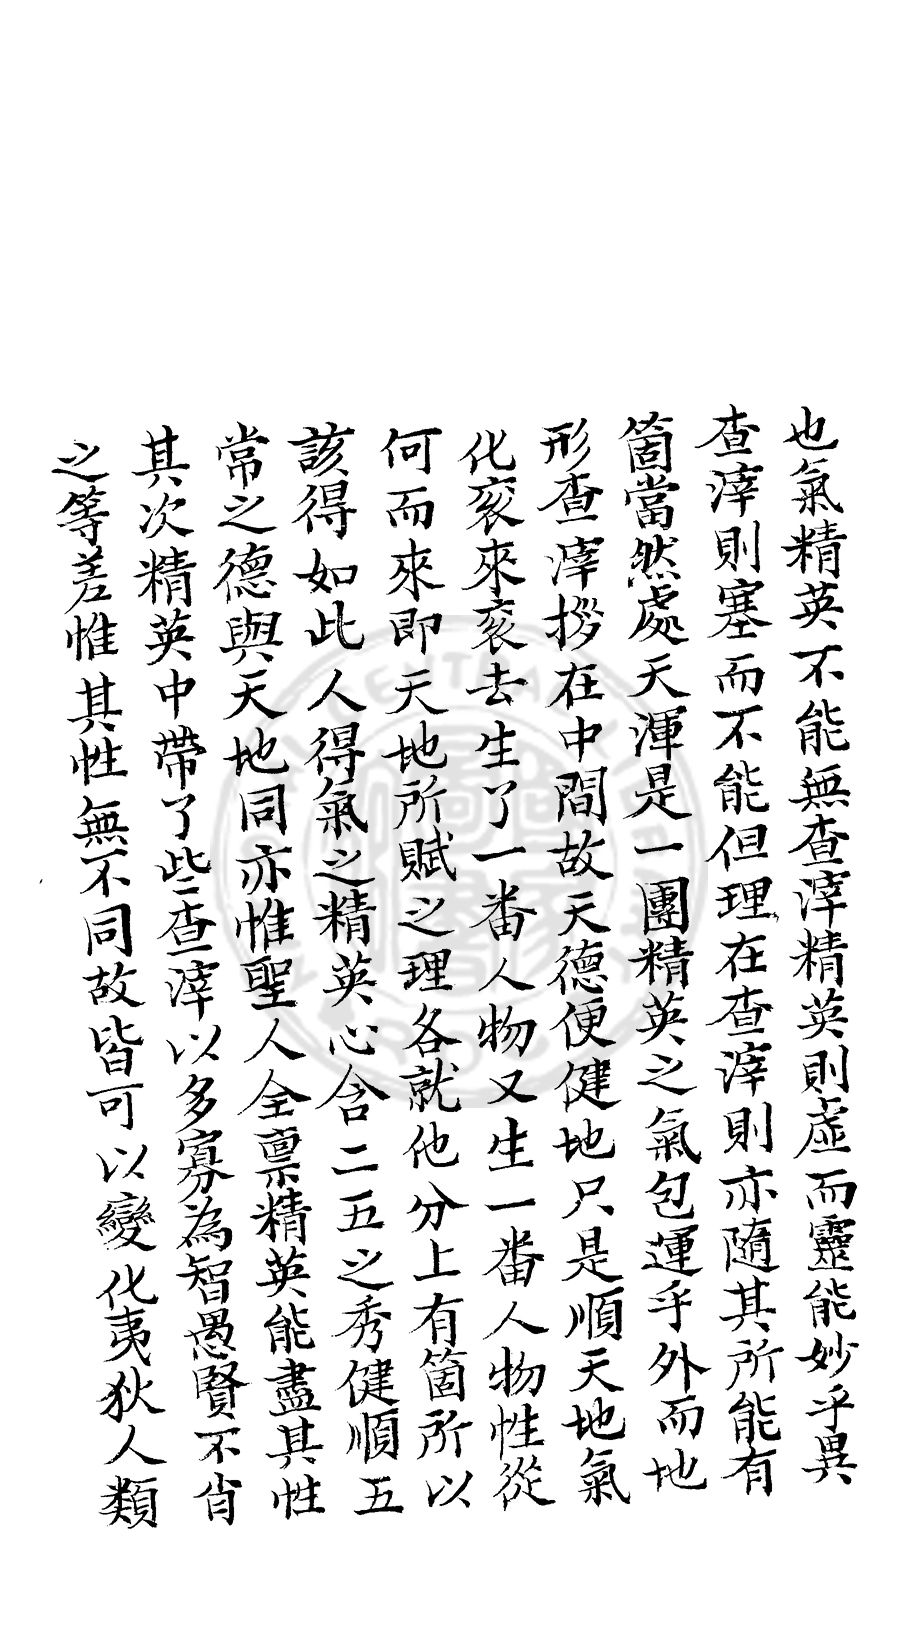 也氣精英不能無查滓精英則虛而靈能妙乎異
查滓則塞而不能但理在查滓則亦隨其所能有
箇當然處天渾是一團精英之氣包運乎外而地
形查滓拶在中間故天德便健地只是順天地氣
化袞來袞去生了一番人物又生一番人物性從
何而來即天地所賦之理各就他分上有箇所以
該得如此人得氣之精英心含二五之秀健順五
常之德與天地同亦惟聖人全禀精英能盡其性
其次精英中帶了些查滓以多寡為智愚賢不肖
之等差惟其性無不同故皆可以變化夷狄人類